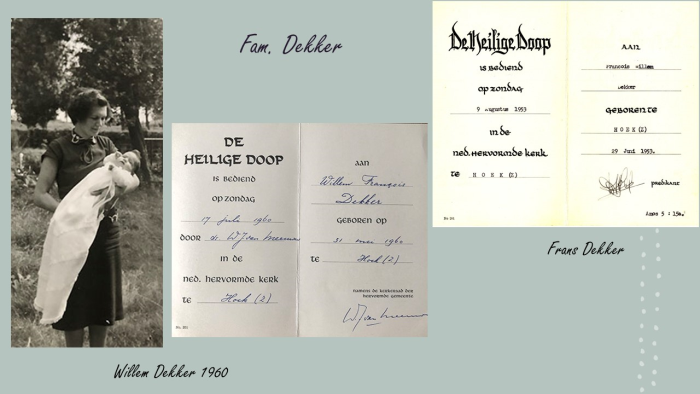 Fam. Dekker
DE
HEILIGE DOOP
IS BEDIEND
OP ZONDAG
17 juli 1960
DOOR ds W J van
IN DE
NED. HERVORMDE KERK
TE Hoek (Z)
AAN
Willem François
Dekker
GEBOREN OP
31 mei 1960
TE Hoek (Z)
NAMENS DE KERKERAAD DER
HERVORMDE GEMEENTE
De Heilige Doop
IS BEDIEND
OP ZONDAG
9 augustus 1953
IN DE
NED. HERVORMDE KERK
TE HOEK (Z)
AAN
Francois Willem
Dekker
GEBOREN TE
HOEK (Z)
29 Juni 1953.
PREDIKANT
Frans Dekker
Willem Dekker 1960